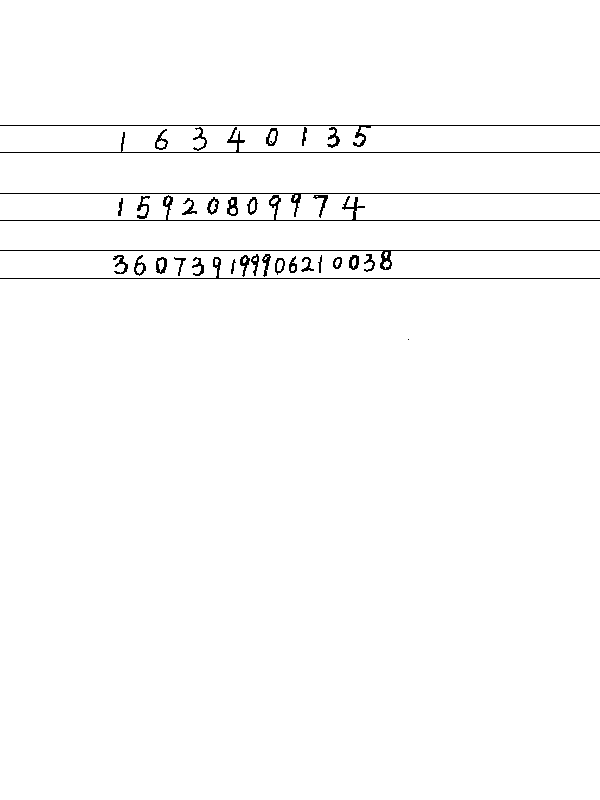 1 6 3 4 0 1 3 5
15920809974
360739199906210038